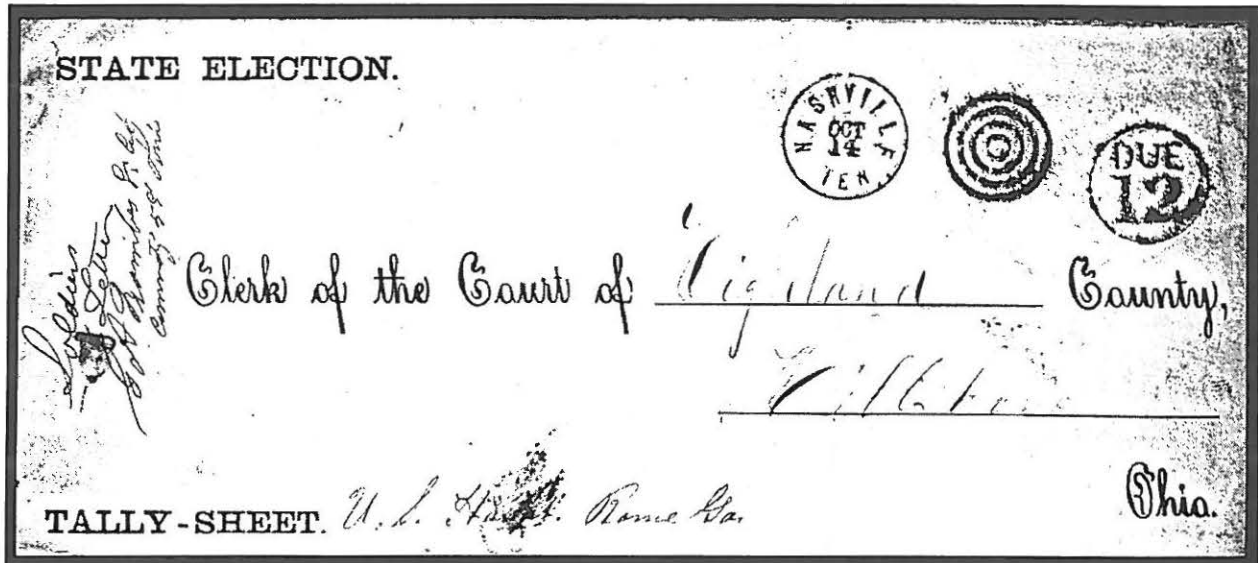 STATE ELECTION.
NASHVILLE
OCT
14
TEN.
DUE
12
Soldiers
Letter
Clerk of the Court of Highland County,
Ohio.
TALLY-SHEET. U.S. Rome Ga.